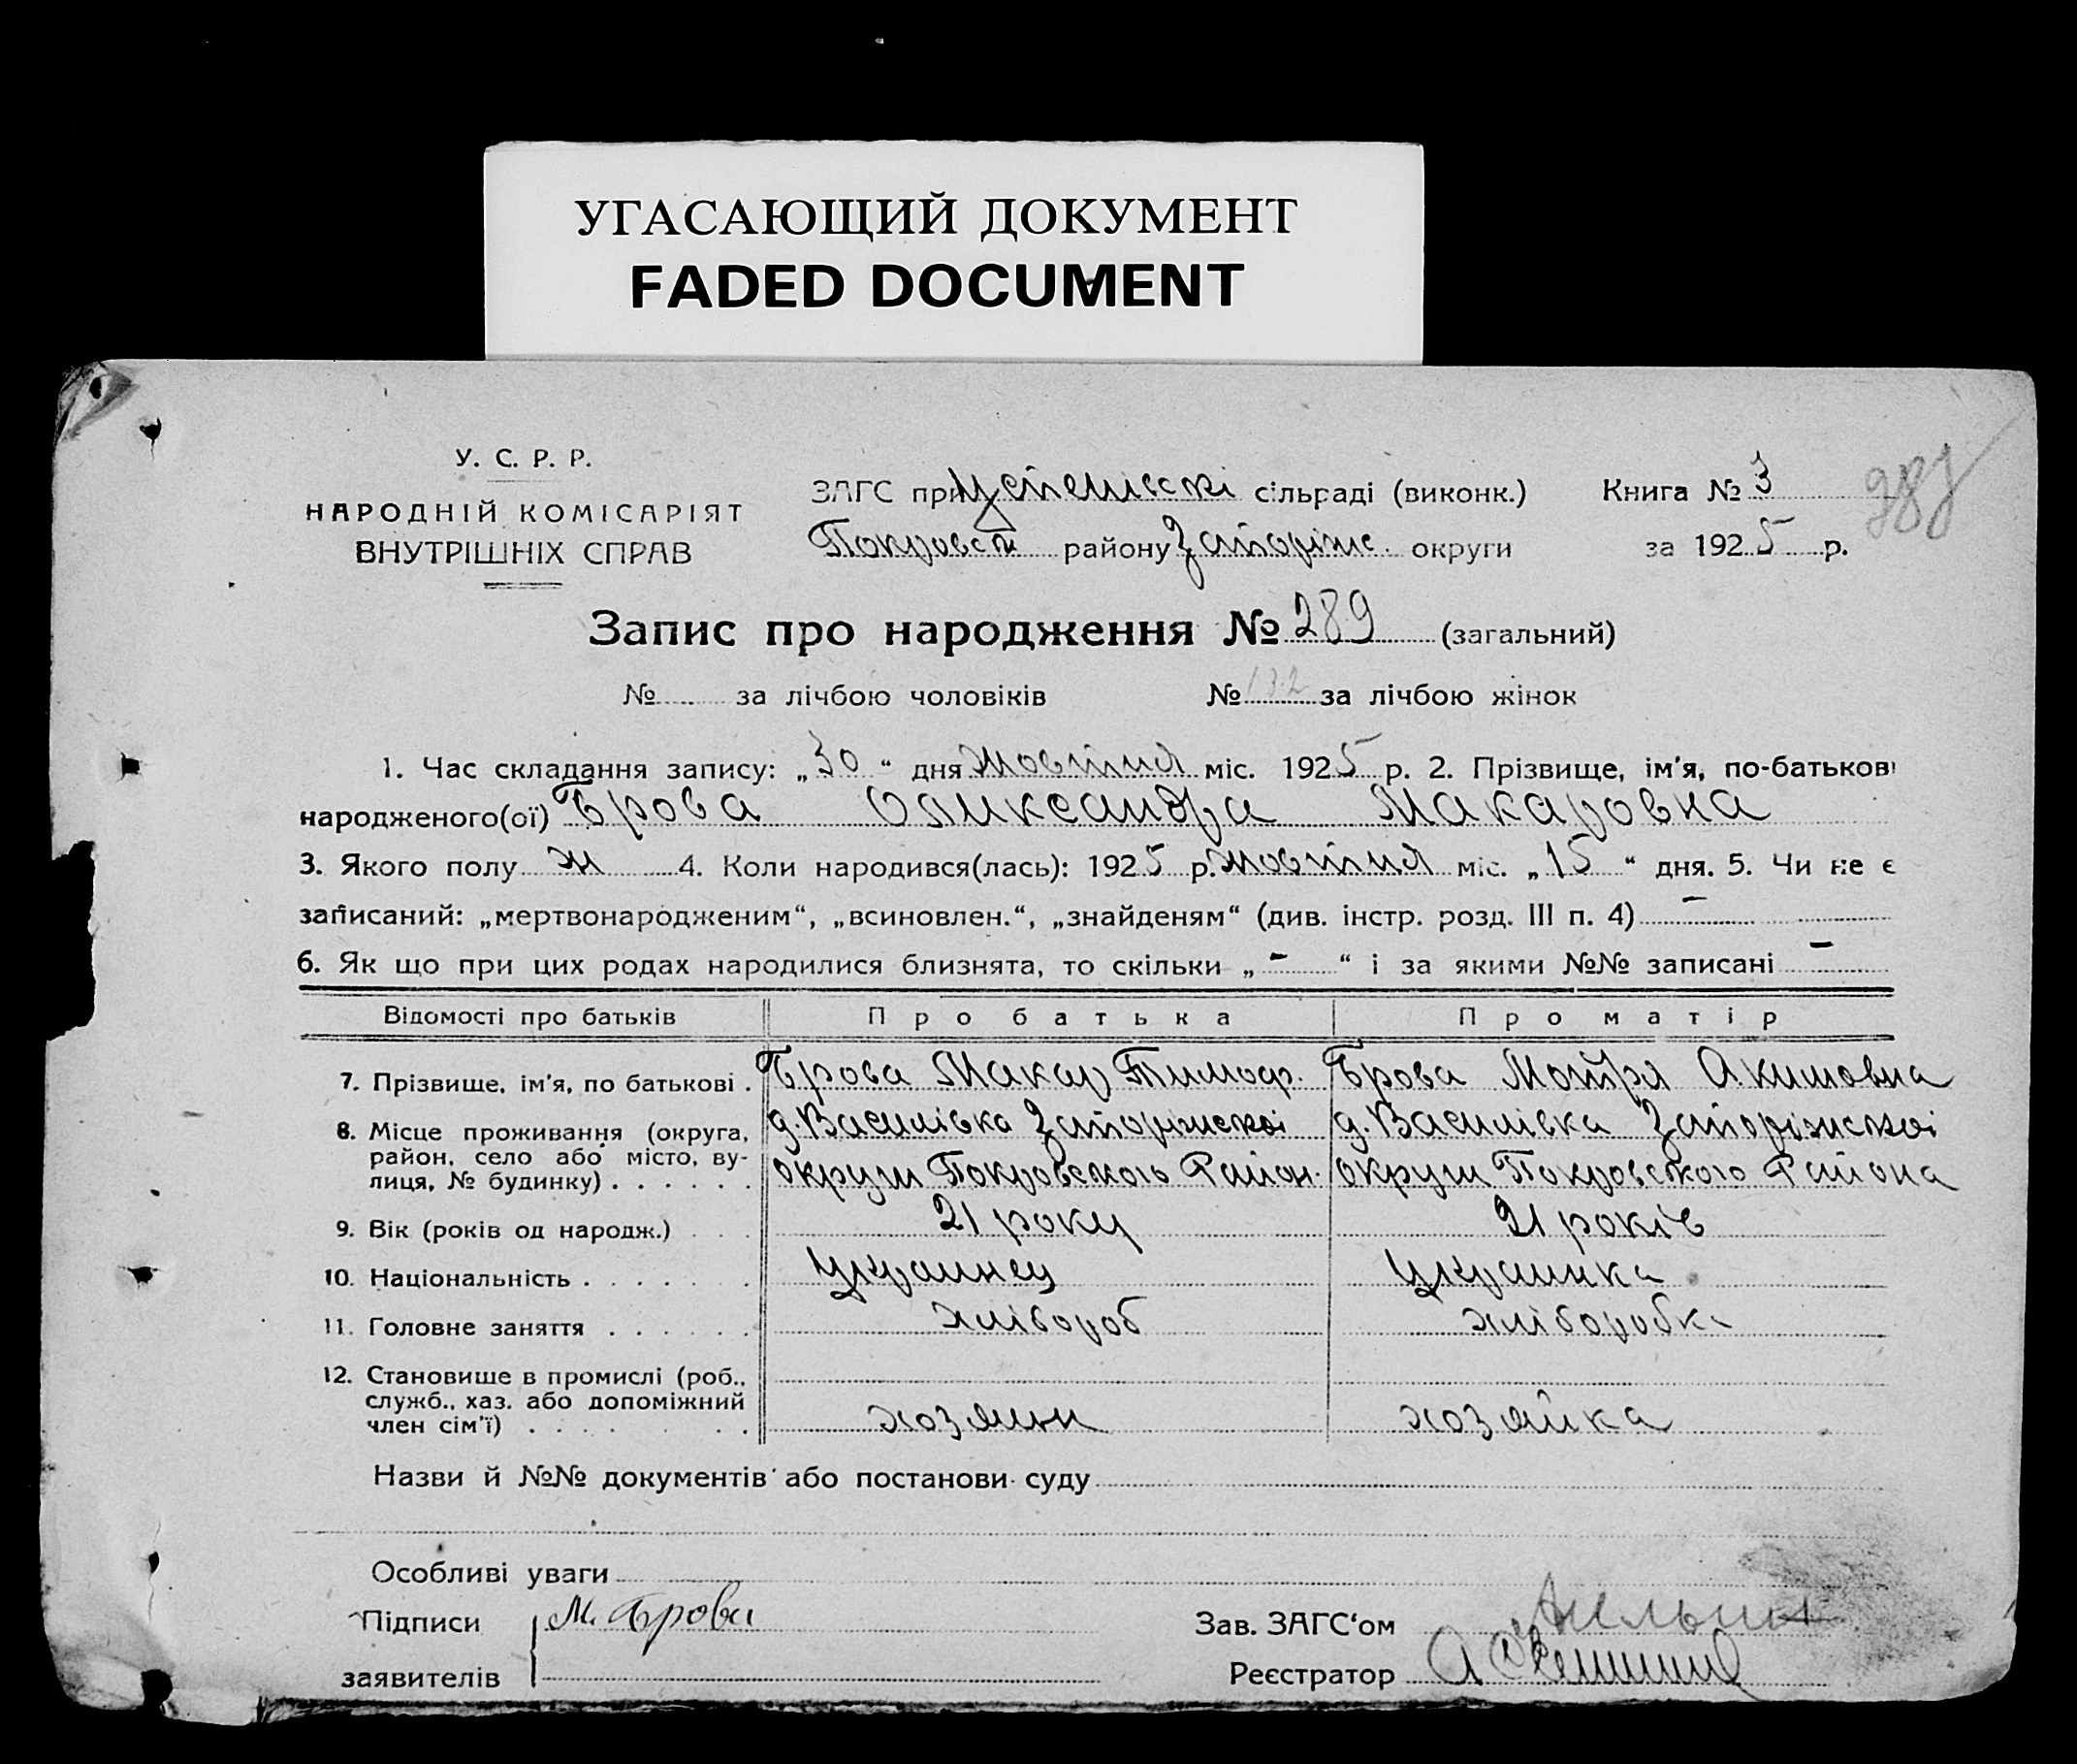 УГАСАЮЩИЙ ДОКУМЕНТ
FADED DOCUMENT
У. С. Р. Р.
НАРОДНІЙ КОМІСАРІЯТ
ВНУТРІШНІХ СПРАВ
ЗАГС при сільраді (виконк.)
Покровськ району Запоріжс. округи
Книга № 3
за 1925 р.
Запис про народження № 289 (загальний)
№ за лічбою чоловіків № 132 за лічбою жінок
1. Час складання запису: „30“ дня жовтня міс. 1925 р. 2. Прізвище, ім'я, по-батькові
народженого(ої) Брова Оликсандра Макаровна
3. Якого полу ж 4. Коли народився(лась): 1925 р. жовтня міс. „15“ дня. 5. Чи не є
записаний: „мертвонародженим“, „всиновлен.“, „знайденям“ (див. інстр. розд. III п. 4) –
6. Як що при цих родах народилися близнята, то скільки „-“ і за якими №№ записані –
Відомості про батьків Про батька Про матір
7. Прізвище, ім'я, по батькові . Брова Макар Тимоф. Брова Мотря Акимовна
8. Місце проживання (округа, район, село або місто, вулиця, № будинку) . . . . . .
д. Василівка Запоріжскої округи Покровського Район.
д. Василівка Запоріжскої округи Покровского Района
9. Вік (років од народж.) . . . 21 року 21 років
10. Національність . . . . . . . Украинец Украинка
11. Головне заняття . . . . . . хлібороб хліборобка
12. Становище в промислі (роб., служб., хаз. або допоміжний член сім'ї) . . . . . . .
хозяин хозяйка
Назви й №№ документів або постанови суду
Особливі уваги
Підписи заявителів М. Брова
Зав. ЗАГС‘ом
Реєстратор